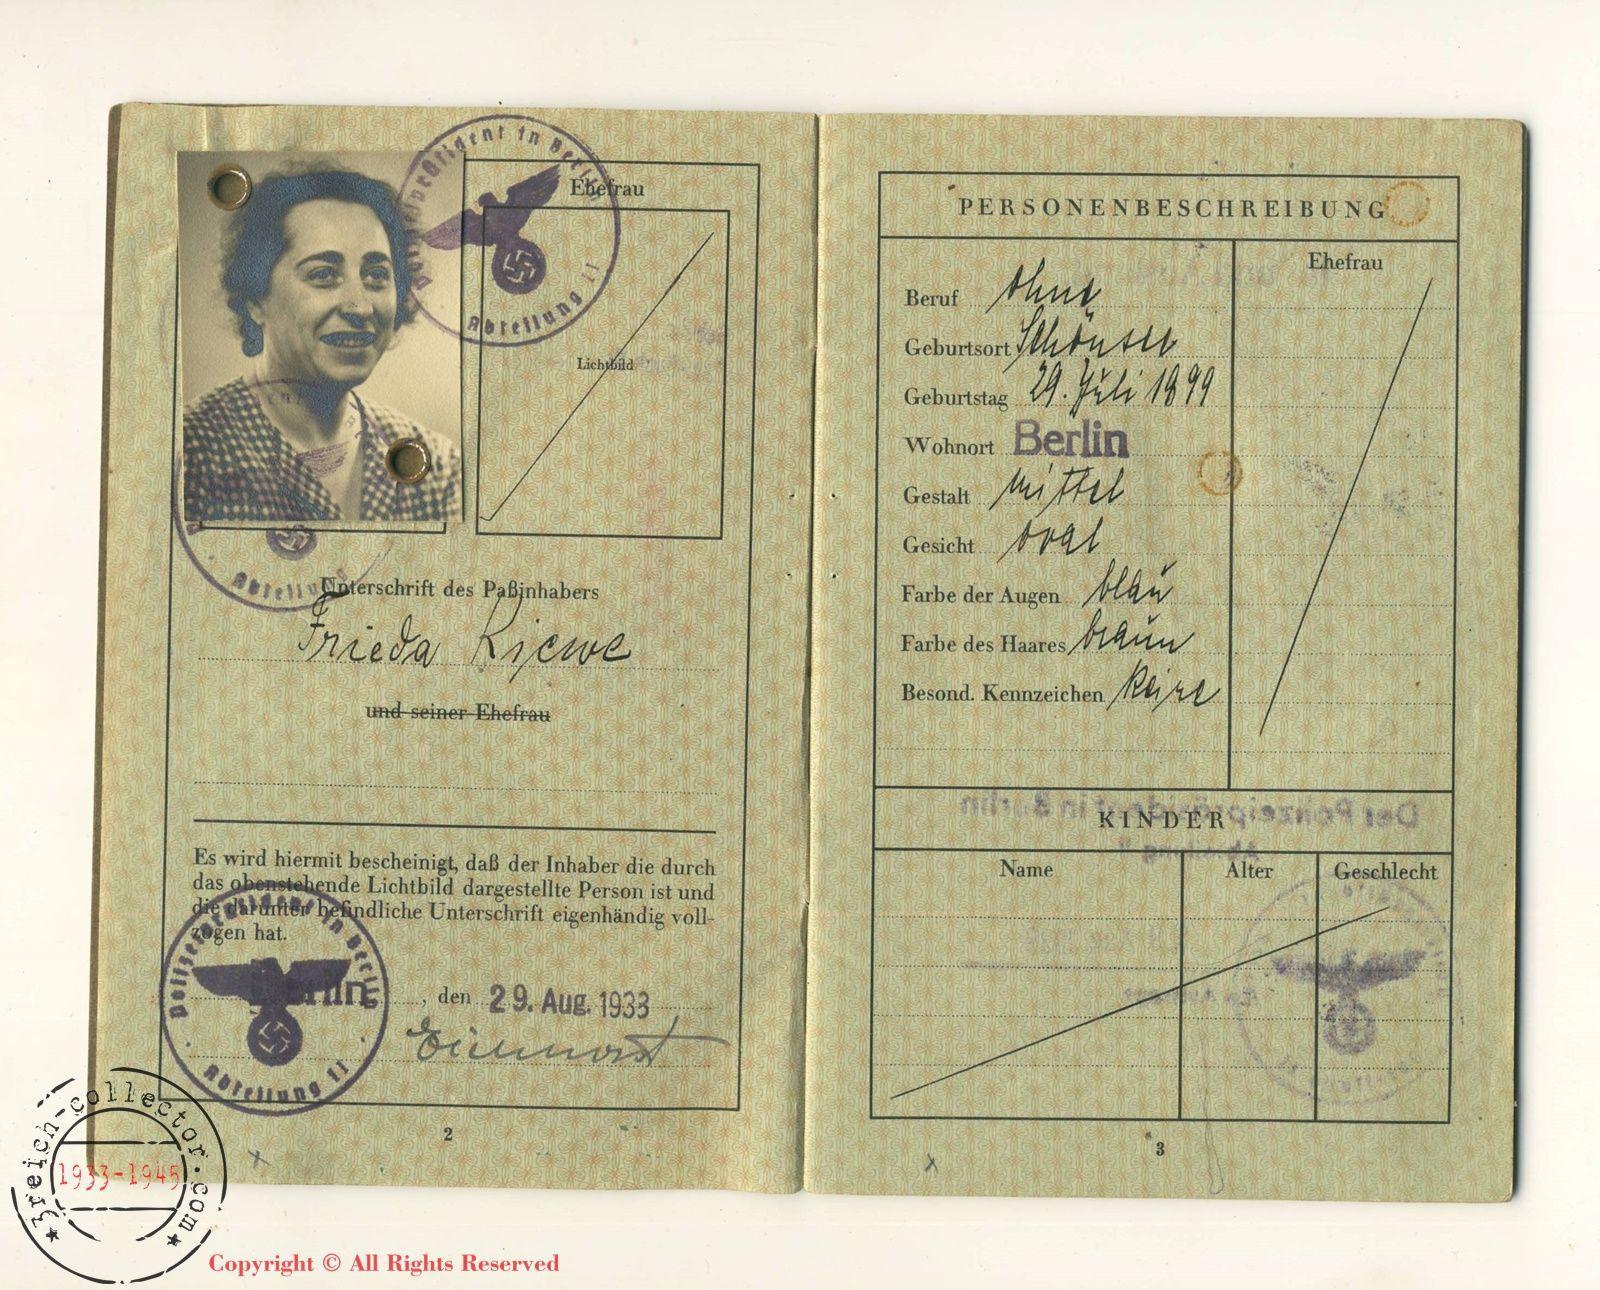 Polizeipräsident in Berlin
Abteilung II
Ehefrau
Lichtbild
Abteilung
Unterschrift des Paßinhabers
Frieda Kiewe
und seiner Ehefrau
Es wird hiermit bescheinigt, daß der Inhaber die durch
das obenstehende Lichtbild dargestellte Person ist und
die darunter befindliche Unterschrift eigenhändig voll-
zogen hat.
Polizeipräsident in Berlin
Abteilung II
Berlin, den 29. Aug. 1933
2
PERSONENBESCHREIBUNG
Ehefrau
Beruf ohne
Geburtsort Schönsee
Geburtstag 29. Juli 1899
Wohnort Berlin
Gestalt mittel
Gesicht oval
Farbe der Augen blau
Farbe des Haares braun
Besond. Kennzeichen keine
Der Polizeipräsident in Berlin
KINDER
Name Alter Geschlecht
3
3reich-collector.com
1933-1945
Copyright © All Rights Reserved